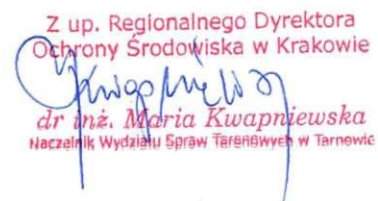 Z up. Regionalnego Dyrektora
Ochrony Środowiska w Krakowie
dr inż. Maria Kwapniewska
Naczelnik Wydziału Spraw Terenowych w Tarnowie